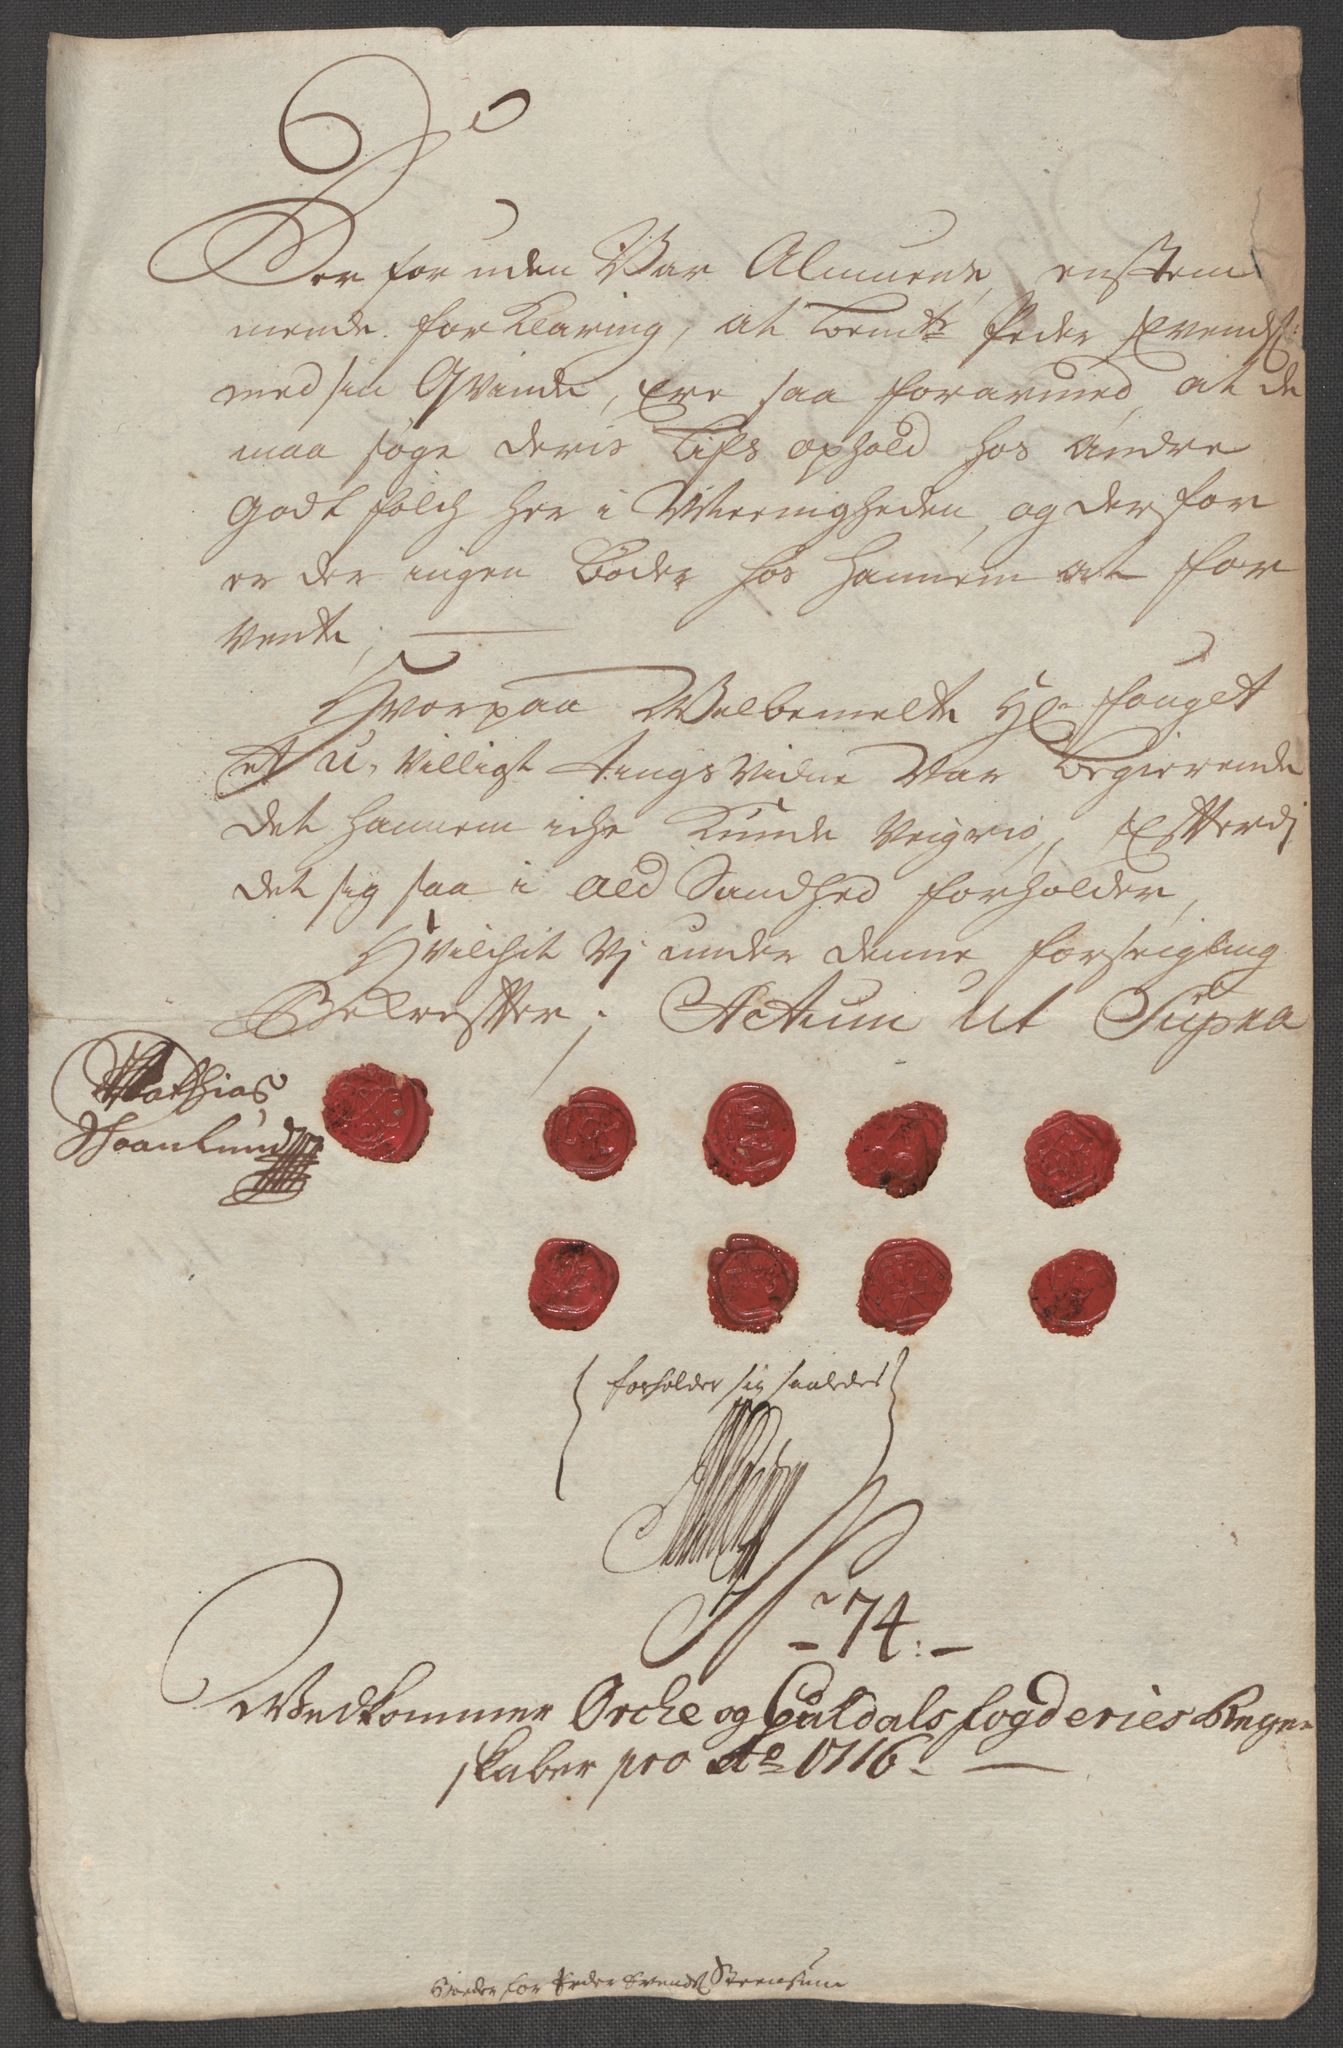 Der for uden Var Almuens enstem
mende forKlaring, at bemte Peder Svends:
med sin Qvinde, Ere saa forarmed, at de
maa søge deris Lifs ophold hos Andre
godt folch her i Meenigheden, og derfor
er der ingen Bøder hos hannem at for
vente,
Hvorpaa Velbemelte Hr fouget
et u-villigt tingsvidne var begierende
det hannem iche Kunde Veigris, Efterdj
det sig saa i ald Sandhed forholder,
Hvilchit Vj under denne forseigling
Bekrefter; Actum Ut Supra
Mathias
Skaanlund
forholder sig saaledes
74.
Vedkommer Orche og Guldals fogderies Regen
skaber pro Ao 1716.
Bøeder for Peder Svends Steensum